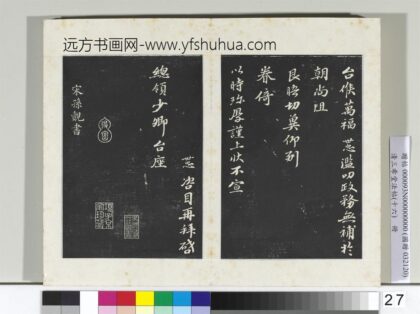 远方书画网-www.yfshuhua.com
台候萬福
濫叨政務無補於
朝尚阻
良晤切冀仰副
眷倚
以時珍厚謹上狀不宣
咨目再拜啓
總領少卿台座
宋孫覿書
27